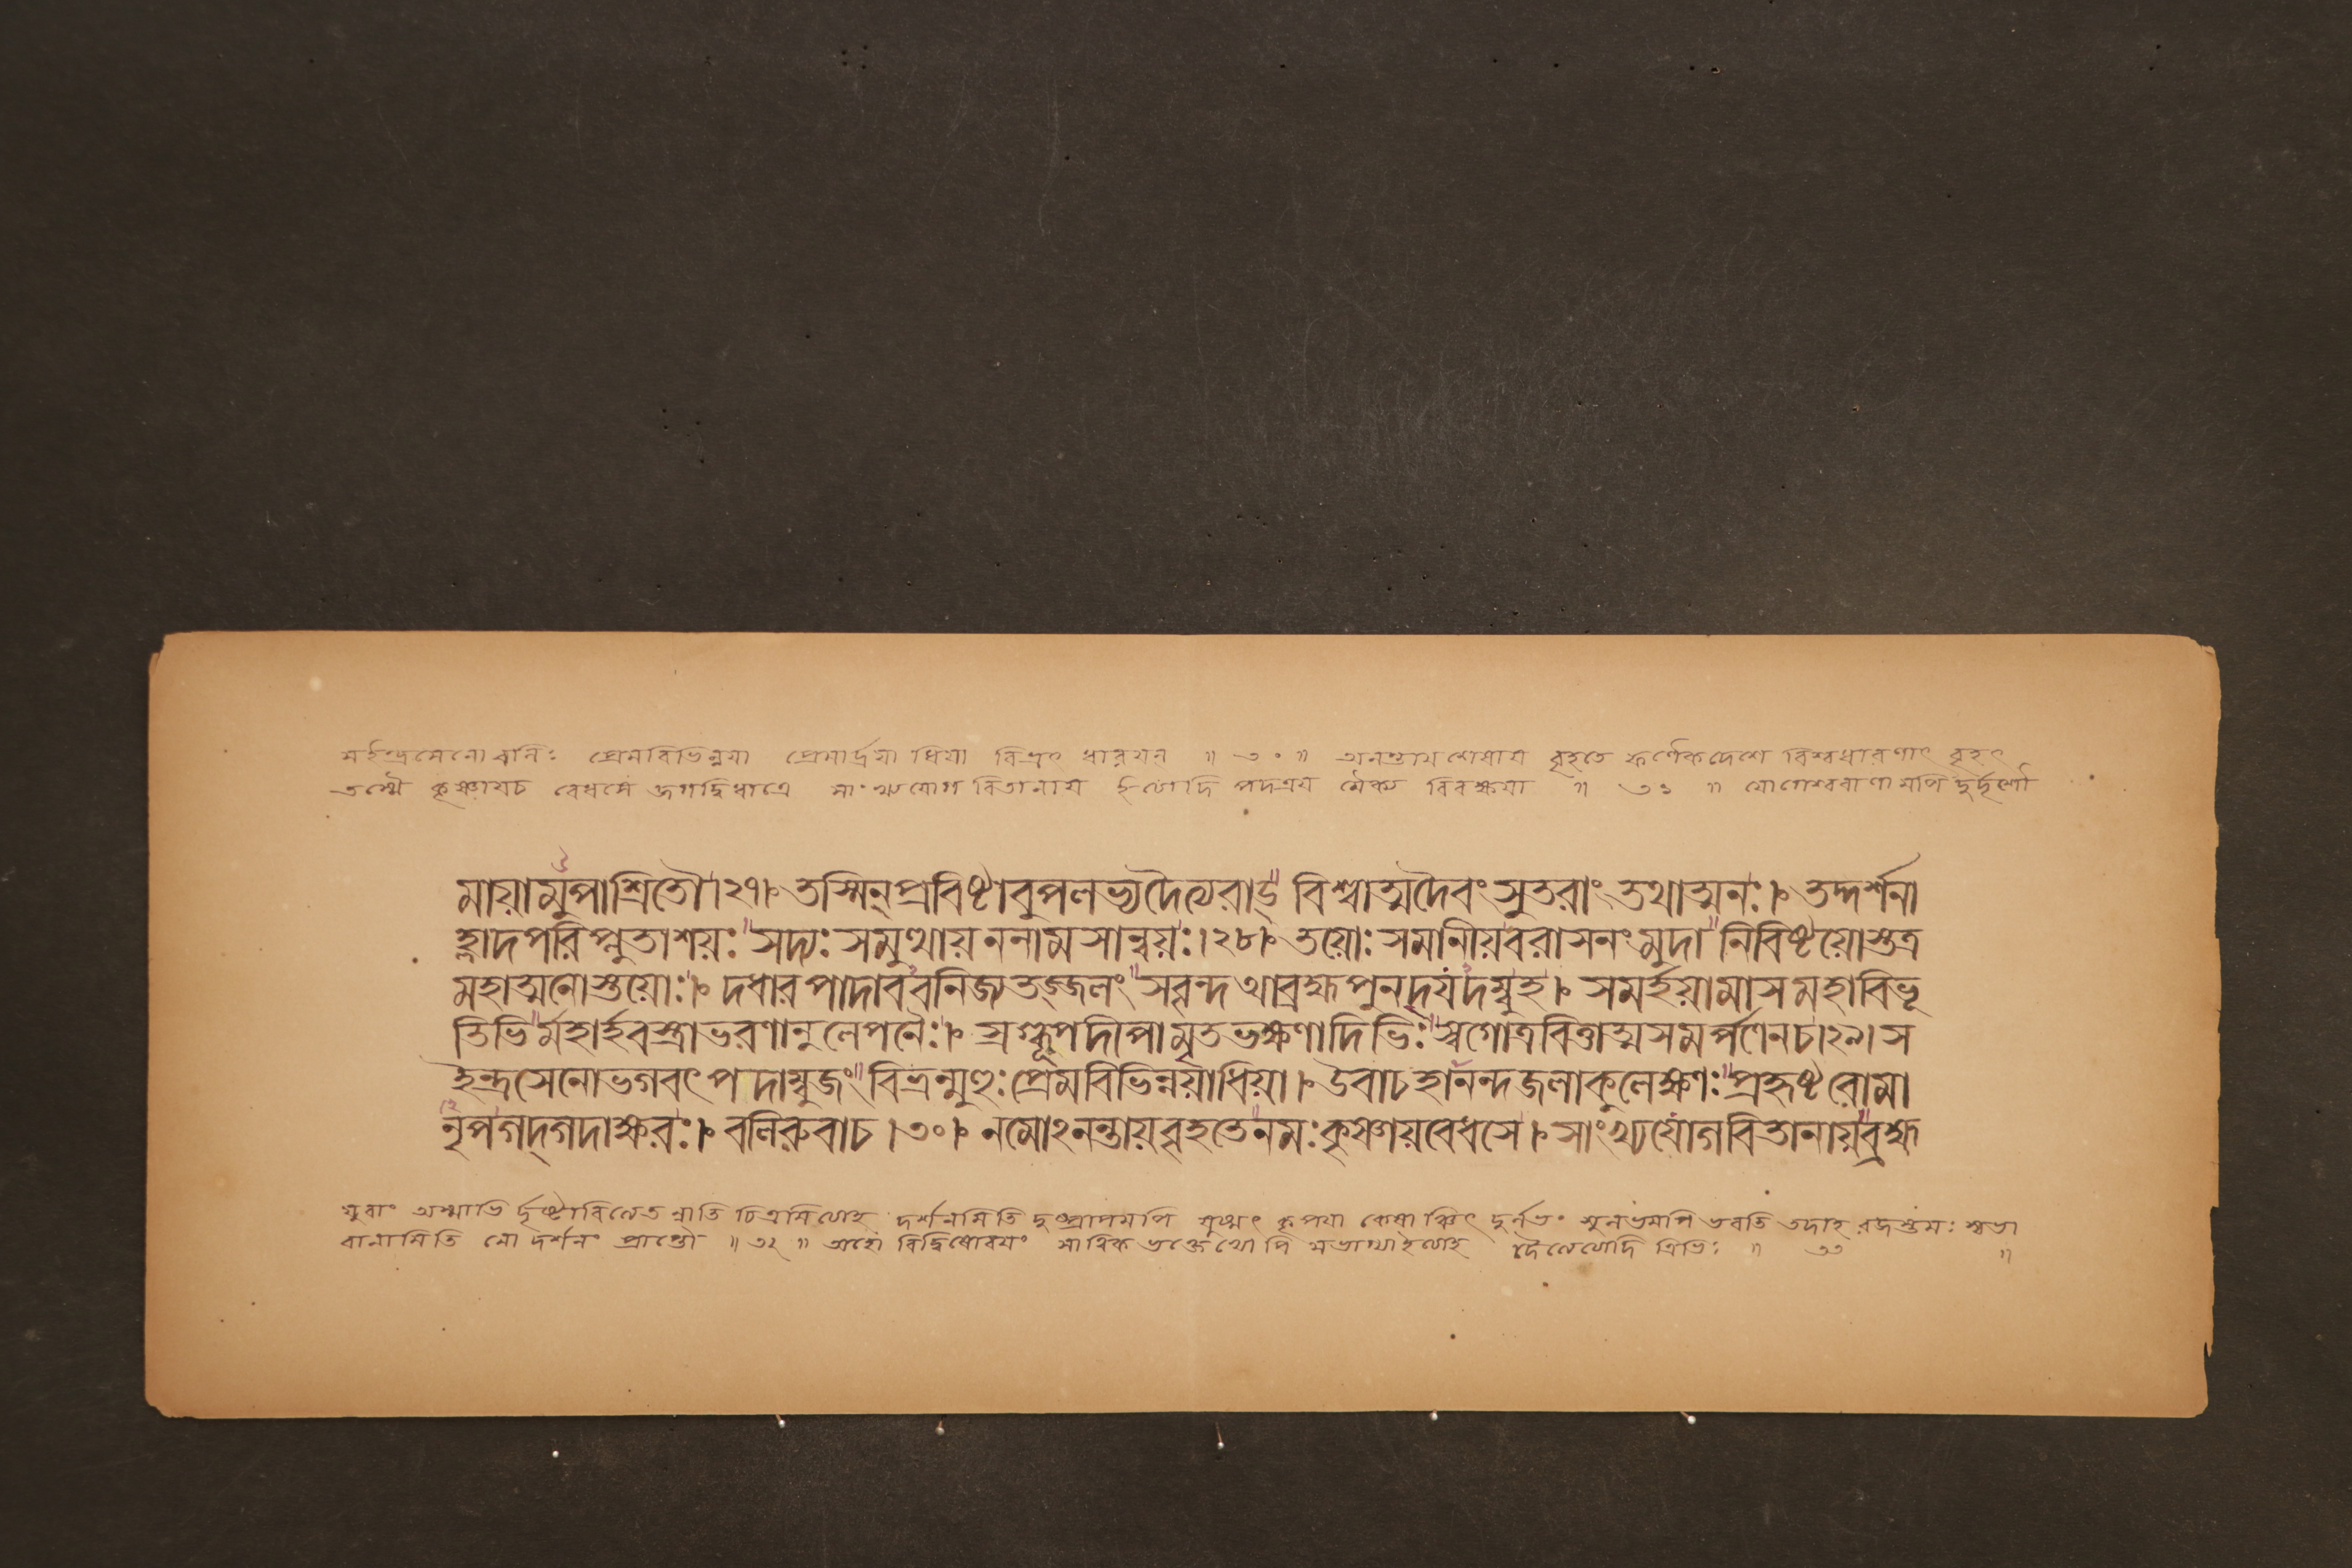 সইন্দ্রসেনো বলিঃ প্রেমবিভিন্নয়া প্রেমার্দ্রয়া ধিয়া বিভ্রৎ ধারয়ন্ ॥ ৩০ ॥ অনন্তায় শেষায় বৃহতে ফণৈকদেশে বিশ্বধারণাৎ বৃহৎ
তস্মৈ কৃষ্ণায়চ বেধসে জগদ্বিধাত্রে সাংখ্যযোগ বিতানায় ইত্যাদি পদত্রয় বিবক্ষয়া ॥ ৩১ ॥ যোগেশ্বরাণামপি
মায়ামুপাশ্রিতৌ।২৭। তস্মিন্প্রবিষ্টাবুপলভ্যদৈত্যরাড্ বিশ্বাত্মদৈবংসুতরাং তথাত্মনঃ। তদ্দর্শনা
হ্লাদপরিপ্লুতাশয়ঃ সদ্যঃ সমুত্থায়ননাম সান্বয়ঃ।২৮। তয়োঃ সমানীয়বরাসনংমুদা নিবিষ্টয়োস্তত্র
মহাত্মনোস্তয়োঃ। দধারপাদাববনিজ্যতজ্জলং সবৃন্দ আব্রহ্মপুনদ্যদম্বুহ। সমর্হয়ামাস মহাবিভূ
তিভির্মহার্হবস্ত্রাভরণানুলেপনৈঃ। স্রগ্ধূপদীপামৃতভক্ষণাদিভিঃ স্বগোত্রবিত্তাত্মসমর্পণেনচ।২৯। স
ইন্দ্রসেনোভগবৎপদাম্বুজং বিভ্রন্মুহুঃপ্রেমবিভিন্নয়াধিয়া। উবাচহানন্দজলাকুলেক্ষণঃ প্রহৃষ্টরোমা
নৃপগদ্গদাক্ষরঃ। বলিরুবাচ।৩০। নমোঽনন্তায়বৃহতেনমঃকৃষ্ণায়বেধসে। সাংখ্যযোগবিতানায়ব্রহ্ম
যুবাং চিত্রমিত্যাহ দর্শনমিতি দুষ্প্রাপমপি কৃপয়া কেষাঞ্চিৎ দুর্লভং সুলভমপি ভবতি তদাহ রজস্তমঃ স্বভা
বানামিতি নো দর্শনং প্রাপ্তৌ ॥ ৩২ ॥ অহো সাত্বিক দৈত্যেত্যাদি ত্রিভিঃ ॥ ৩৩ ॥